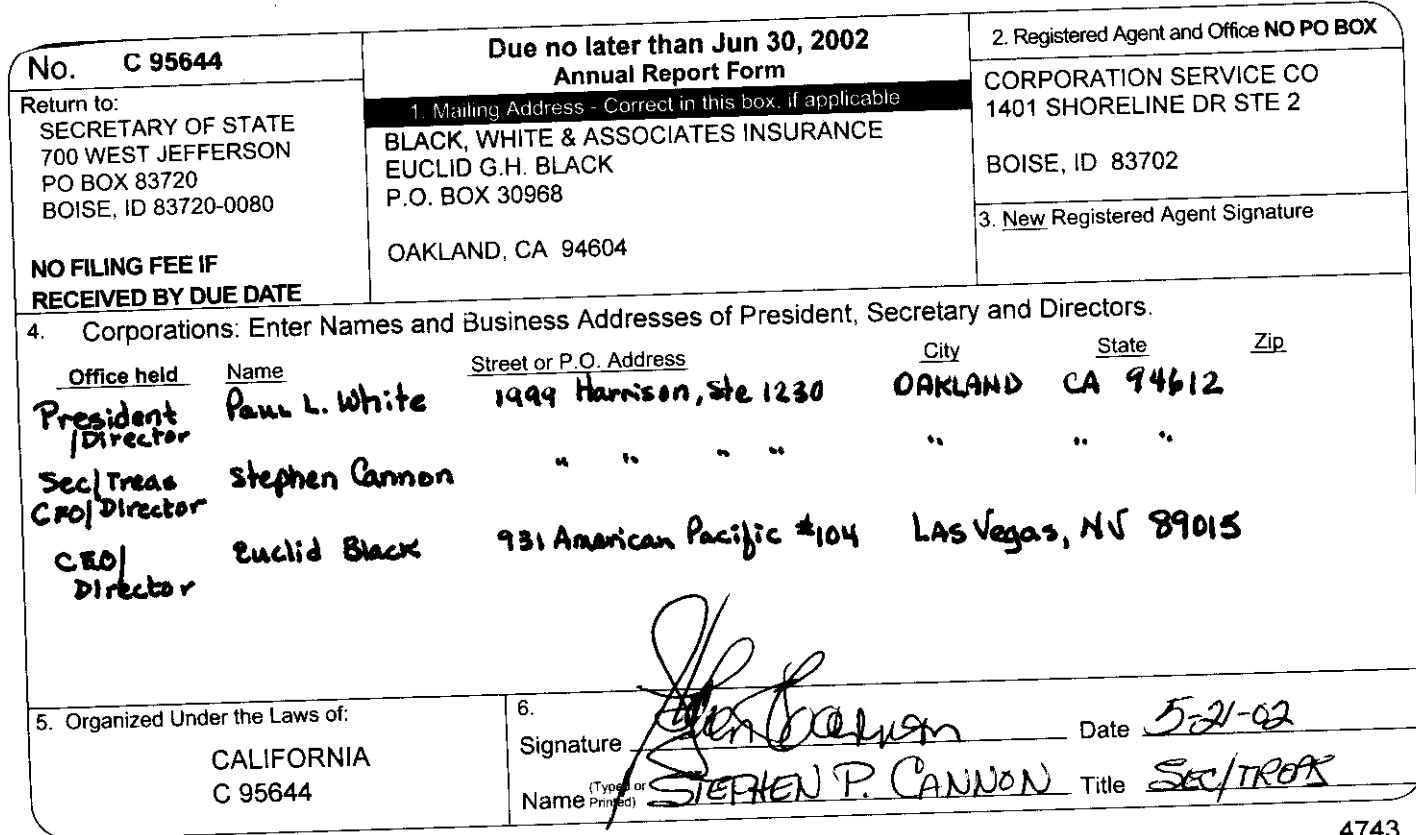 No. C 95644
Return to:
SECRETARY OF STATE
700 WEST JEFFERSON
PO BOX 83720
BOISE, ID 83720-0080
NO FILING FEE IF
RECEIVED BY DUE DATE
Due no later than Jun 30, 2002
Annual Report Form
1. Mailing Address - Correct in this box, if applicable
BLACK, WHITE & ASSOCIATES INSURANCE
EUCLID G.H. BLACK
P.O. BOX 30968
OAKLAND, CA 94604
2. Registered Agent and Office NO PO BOX
CORPORATION SERVICE CO
1401 SHORELINE DR STE 2
BOISE, ID 83702
3. New Registered Agent Signature
4. Corporations: Enter Names and Business Addresses of President, Secretary and Directors.
Office held Name Street or P.O. Address City State Zip
President Paul L. White 1999 Harrison, Ste 1230 OAKLAND CA 94612
/Director
Sec/Treas Stephen Cannon " " " " " " "
CFO/Director
CEO/ Euclid Black 931 American Pacific #104 LAS Vegas, NV 89015
Director
5. Organized Under the Laws of:
CALIFORNIA
C 95644
6.
Signature Stephen Cannon Date 5-21-02
Name (Typed or Printed) STEPHEN P. CANNON Title SEC/TREAS
4743